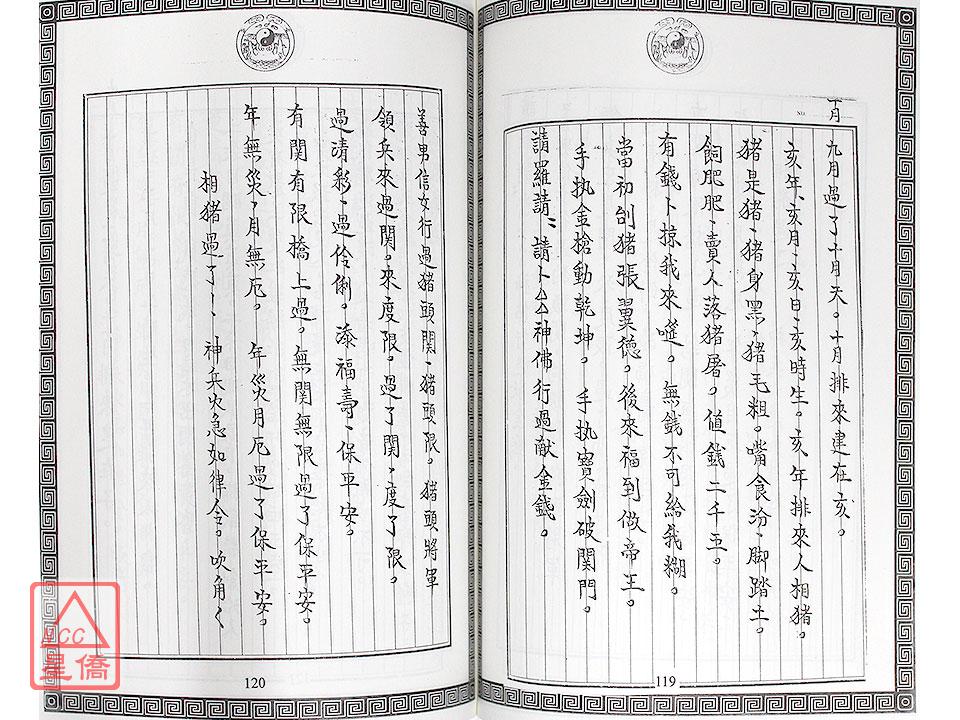 十月
NO.
九月過了十月天。十月排來建在亥。
亥年、亥月、亥日、亥時生。亥年排來人相猪。
猪是猪、猪身黑、猪毛粗。嘴食汾、脚踏土。
飼肥肥、賣人落猪屠。值錢二千五。
有錢卜掠我來嗟。無錢不可給我糊。
當初刣猪張翼德。後來福到做帝王。
手执金槍動乾坤。手执寶劍破関門。
請羅請、請卜公神佛行過献金錢。
119
善男信女行過猪頭関、猪頭限。猪頭將軍
領兵來過関。來度限。過了関、度了限。
過清彩、過伶俐。添福壽、保平安。
有関有限橋上過。無関無限過了保平安。
年無災、月無厄。年災月厄過了保平安。
相猪過了、神兵火急如律令。吹角
120
NCC
星僑